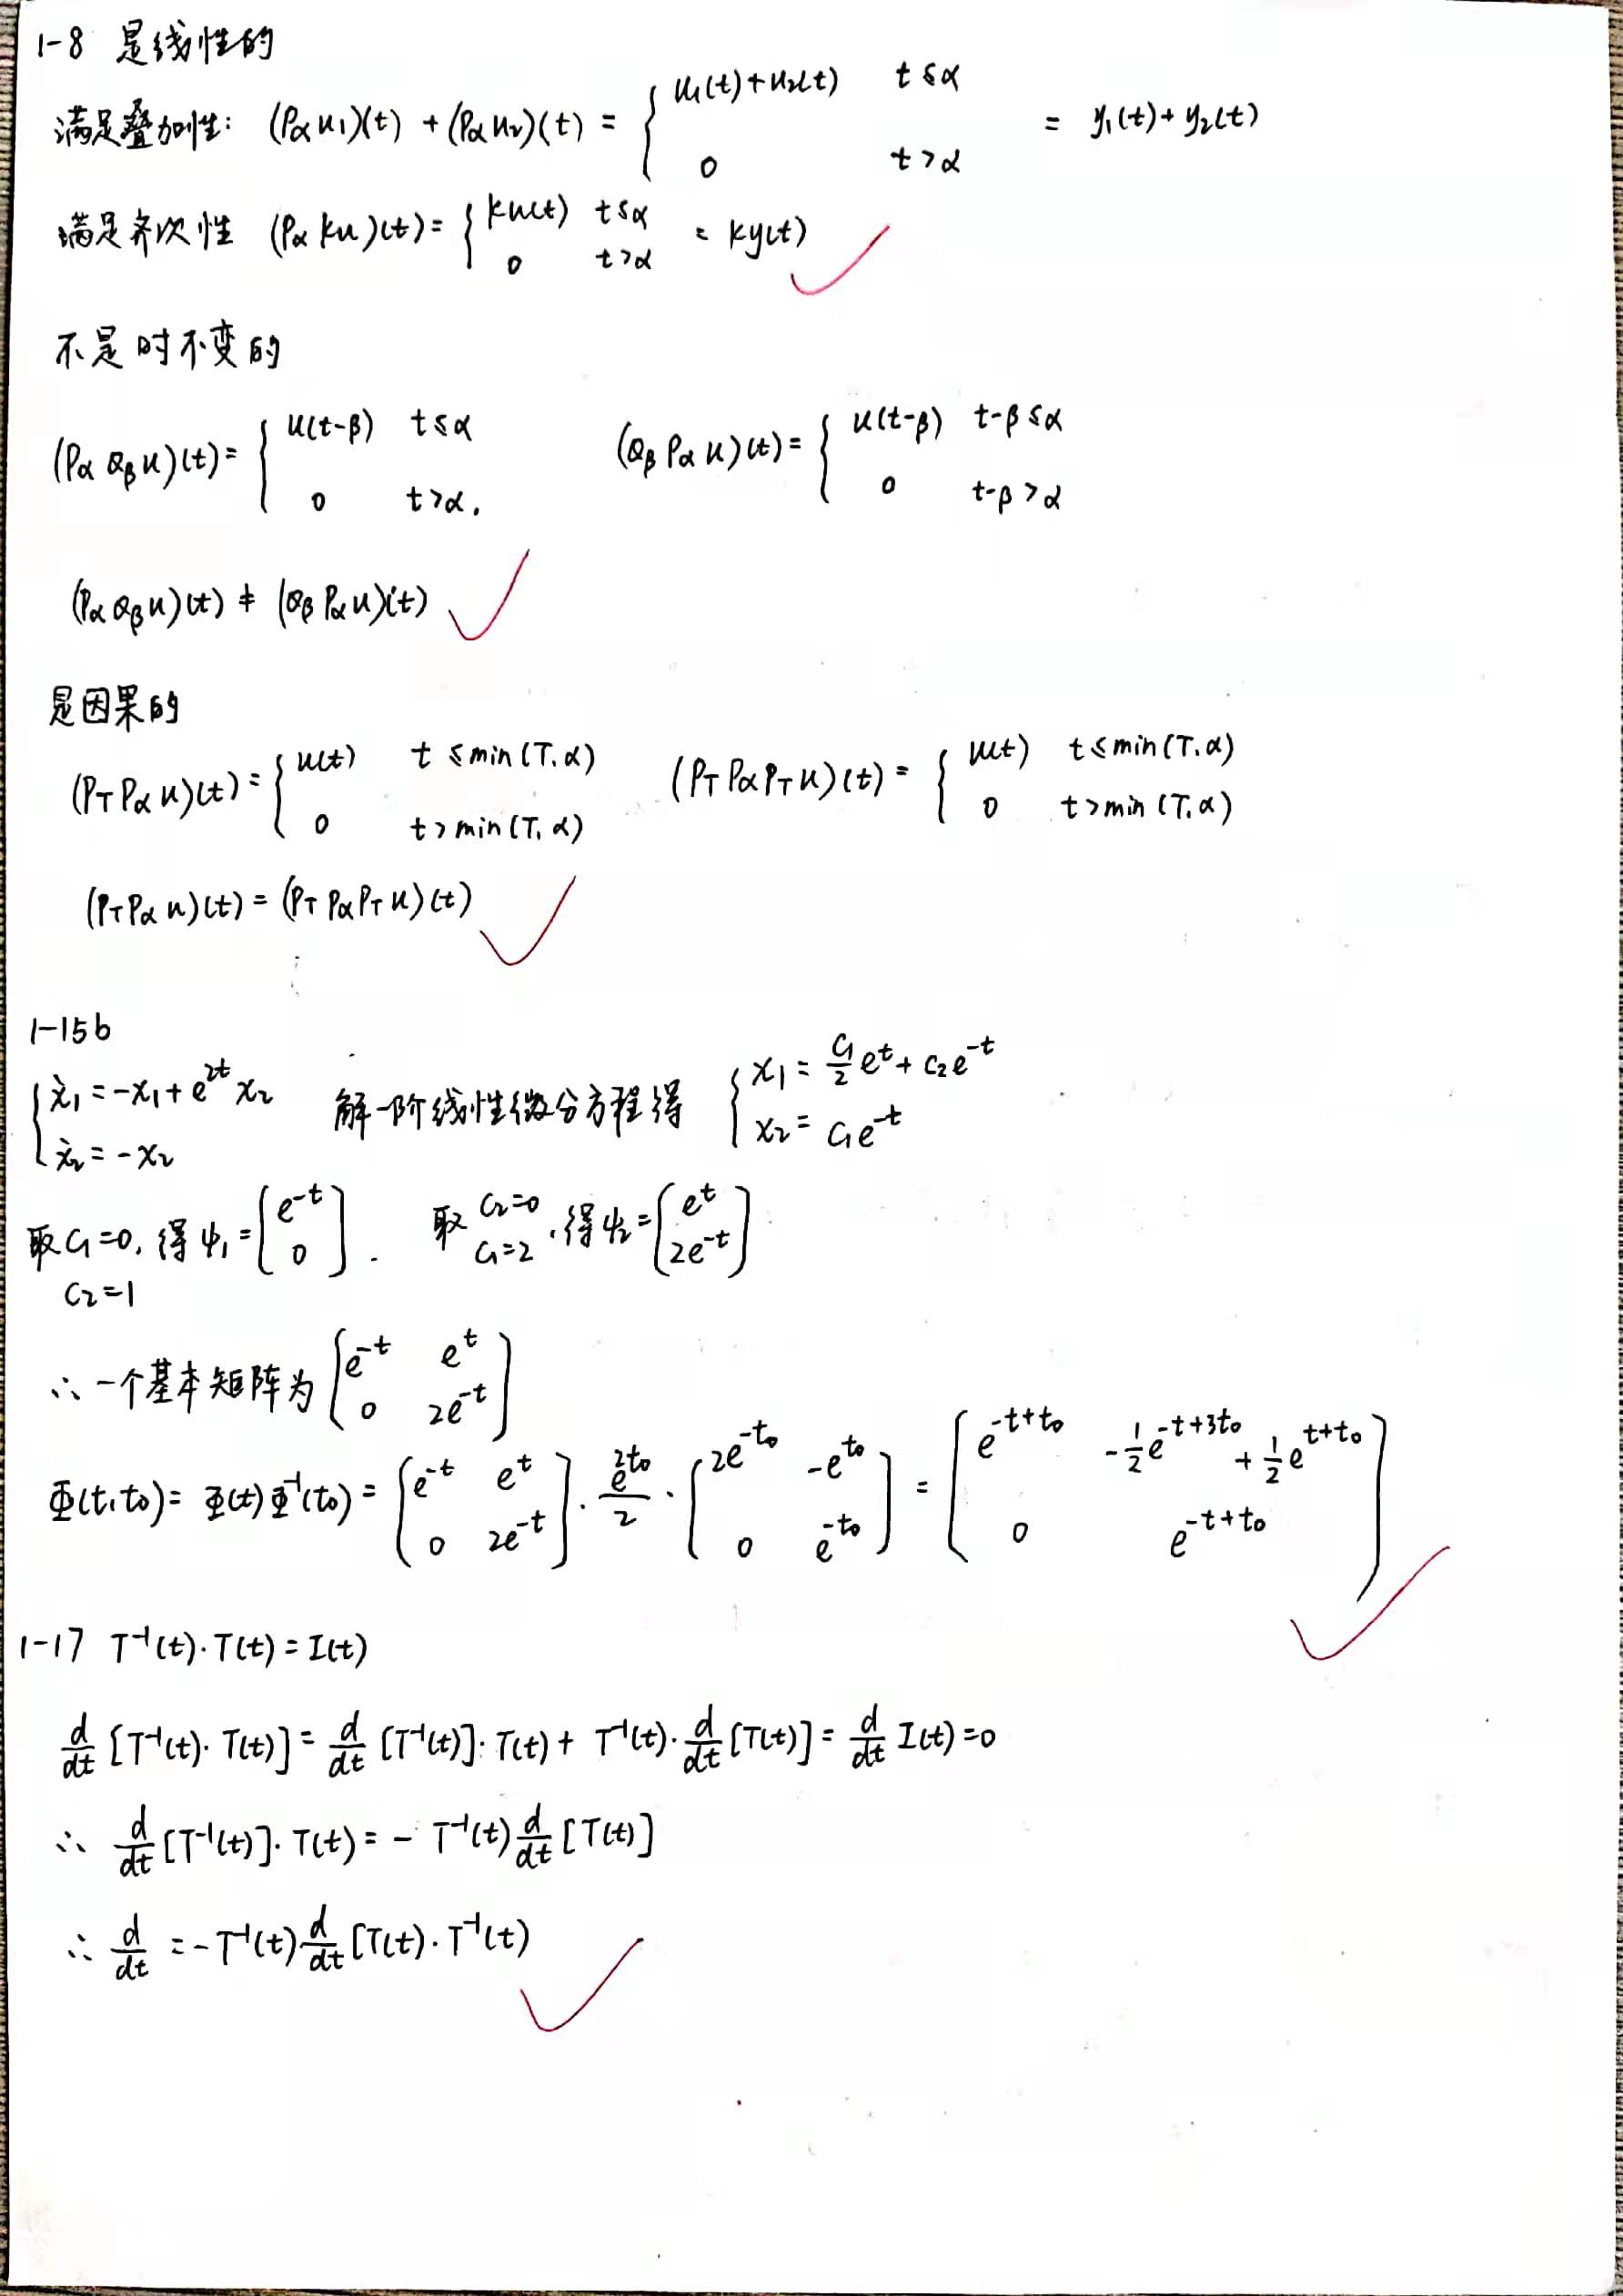 1-8 是线性的
满足叠加性: (Pα u1)(t) + (Pα u2)(t) = { u1(t)+u2(t) t≤α ; 0 t>α = y1(t)+y2(t)
满足齐次性 (Pα ku)(t) = { ku(t) t≤α ; 0 t>α = ky(t)
不是时不变的
(Pα Qβ u)(t) = { u(t-β) t≤α ; 0 t>α. (Qβ Pα u)(t) = { u(t-β) t-β≤α ; 0 t-β>α
(Pα Qβ u)(t) ≠ (Qβ Pα u)(t)
是因果的
(PT Pα u)(t) = { u(t) t≤min(T,α) ; 0 t>min(T,α) (PT Pα PT u)(t) = { u(t) t≤min(T,α) ; 0 t>min(T,α)
(PT Pα u)(t) = (PT Pα PT u)(t)
1-15b
{ ẋ1 = -x1 + e^{2t} x2 ; ẋ2 = -x2 解一阶线性微分方程得 { x1 = C1/2 e^t + C2 e^{-t} ; x2 = C1 e^{-t}
取C1=0, C2=1 得ψ1 = [e^{-t} ; 0]. 取C2=0 C1=2, 得ψ2 = [e^t ; 2e^{-t}]
∴一个基本矩阵为 [e^{-t} e^t ; 0 2e^{-t}]
Φ(t,t0) = Φ(t)Φ^{-1}(t0) = [e^{-t} e^t ; 0 2e^{-t}] · e^{2t0}/2 · [2e^{-t0} -e^{t0} ; 0 e^{-t0}] = [e^{-t+t0} -1/2 e^{-t+3t0} + 1/2 e^{t+t0} ; 0 e^{-t+t0}]
1-17 T^{-1}(t)·T(t) = I(t)
d/dt [T^{-1}(t)·T(t)] = d/dt [T^{-1}(t)]·T(t) + T^{-1}(t)·d/dt [T(t)] = d/dt I(t) = 0
∴ d/dt [T^{-1}(t)]·T(t) = - T^{-1}(t) d/dt [T(t)]
∴ d/dt = -T^{-1}(t) d/dt [T(t)·T^{-1}(t)